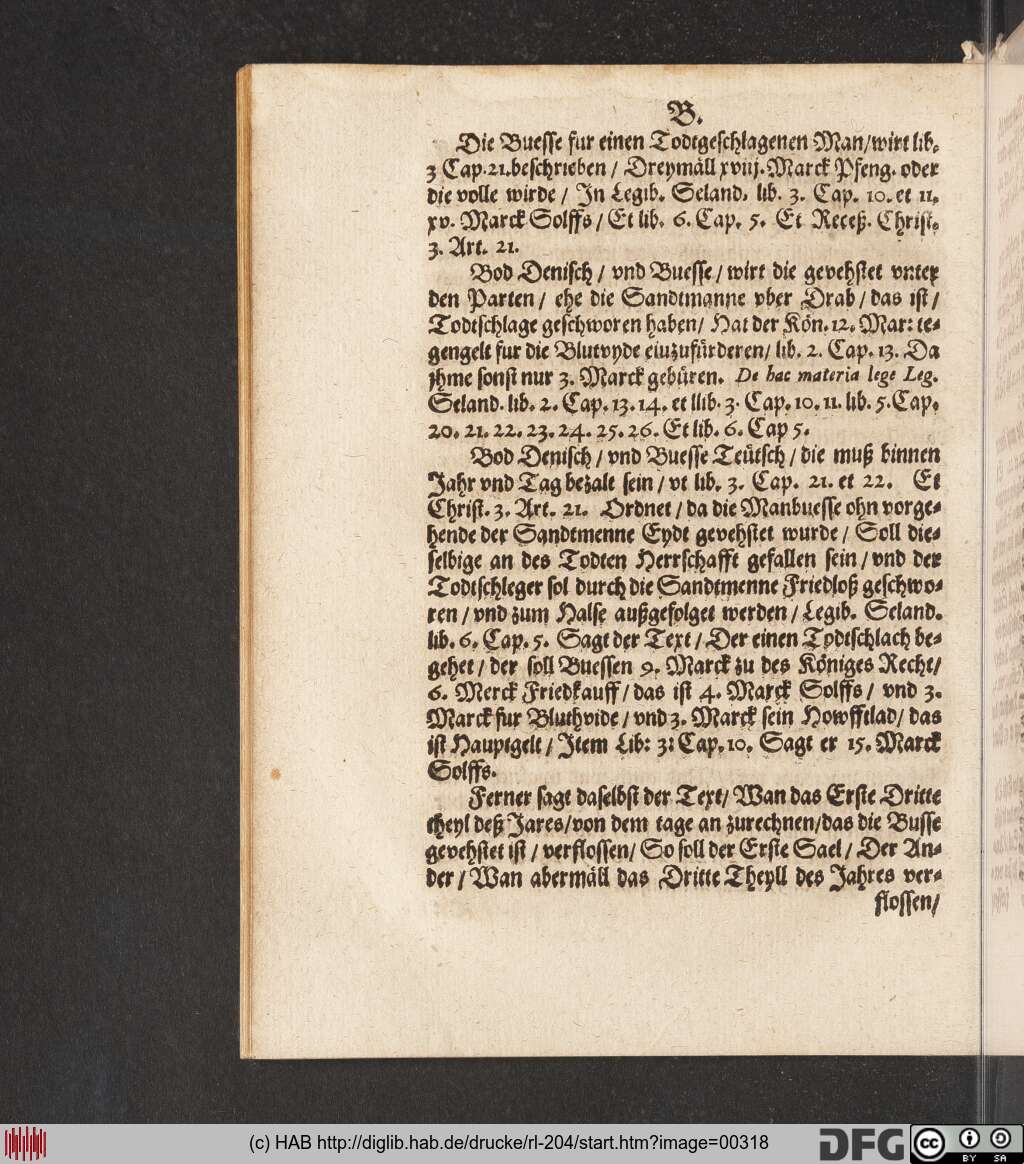 B.
Die Buesse fur einen Todtgeschlagenen Man/wirt lib.
3 Cap.21.beschrieben / Dreymäll xviij. Marck Pfeng. oder
die volle wirde / In Legib. Seland. lib. 3. Cap. 10. et 11.
xv. Marck Solffs / Et lib. 6. Cap. 5. Et Receß. Christ.
3. Art. 21.
Bod Denisch / vnd Buesse / wirt die gevehstet vnter
den Parten / ehe die Sandtmanne vber Drab / das ist /
Todtschlage geschworen haben/ Hat der Kön. 12. Mar: le-
gengelt fur die Blutvyde eiuzufürderen/ lib. 2. Cap. 13. Da
jhme sonst nur 3. Marck gebüren. De hac materia lege Leg.
Seland. lib. 2. Cap. 13. 14. et llib. 3. Cap. 10. 11. lib. 5. Cap.
20. 21. 22. 23. 24. 25. 26. Et lib. 6. Cap 5.
Bod Denisch / vnd Buesse Teütsch / die muß binnen
Jahr vnd Tag bezalt sein / vt lib. 3. Cap. 21. et 22. Et
Christ. 3. Art. 21. Ordnet / da die Manbuesse ohn vorge-
hende der Sandtmenne Eydt gevehstet wurde / Soll die-
selbige an des Todten Herrschafft gefallen sein / vnd der
Todtschleger sol durch die Sandtmenne Friedloß geschwo-
ren / vnd zum Halse außgefolget werden / Legib. Seland.
lib. 6. Cap. 5. Sagt der Text / Der einen Todtschlach be-
gehet / der soll Buessen 9. Marck zu des Königes Recht/
6. Merck Friedkauff / das ist 4. Marck Solffs / vnd 3.
Marck fur Bluthvide / vnd 3. Marck sein Howfftlad/ das
ist Hauptgelt / Item Lib: 3: Cap. 10. Sagt er 15. Marck
Solffs.
Ferner sagt daselbst der Text/ Wan das Erste Dritte
theyl deß Jares/von dem tage an zurechnen/das die Busse
gevehstet ist / verflossen/ So soll der Erste Sael / Der An-
der / Wan abermäll das Dritte Theyll des Jahres ver-
flossen/
(c) HAB http://diglib.hab.de/drucke/rl-204/start.htm?image=00318
DFG
cc
BY SA